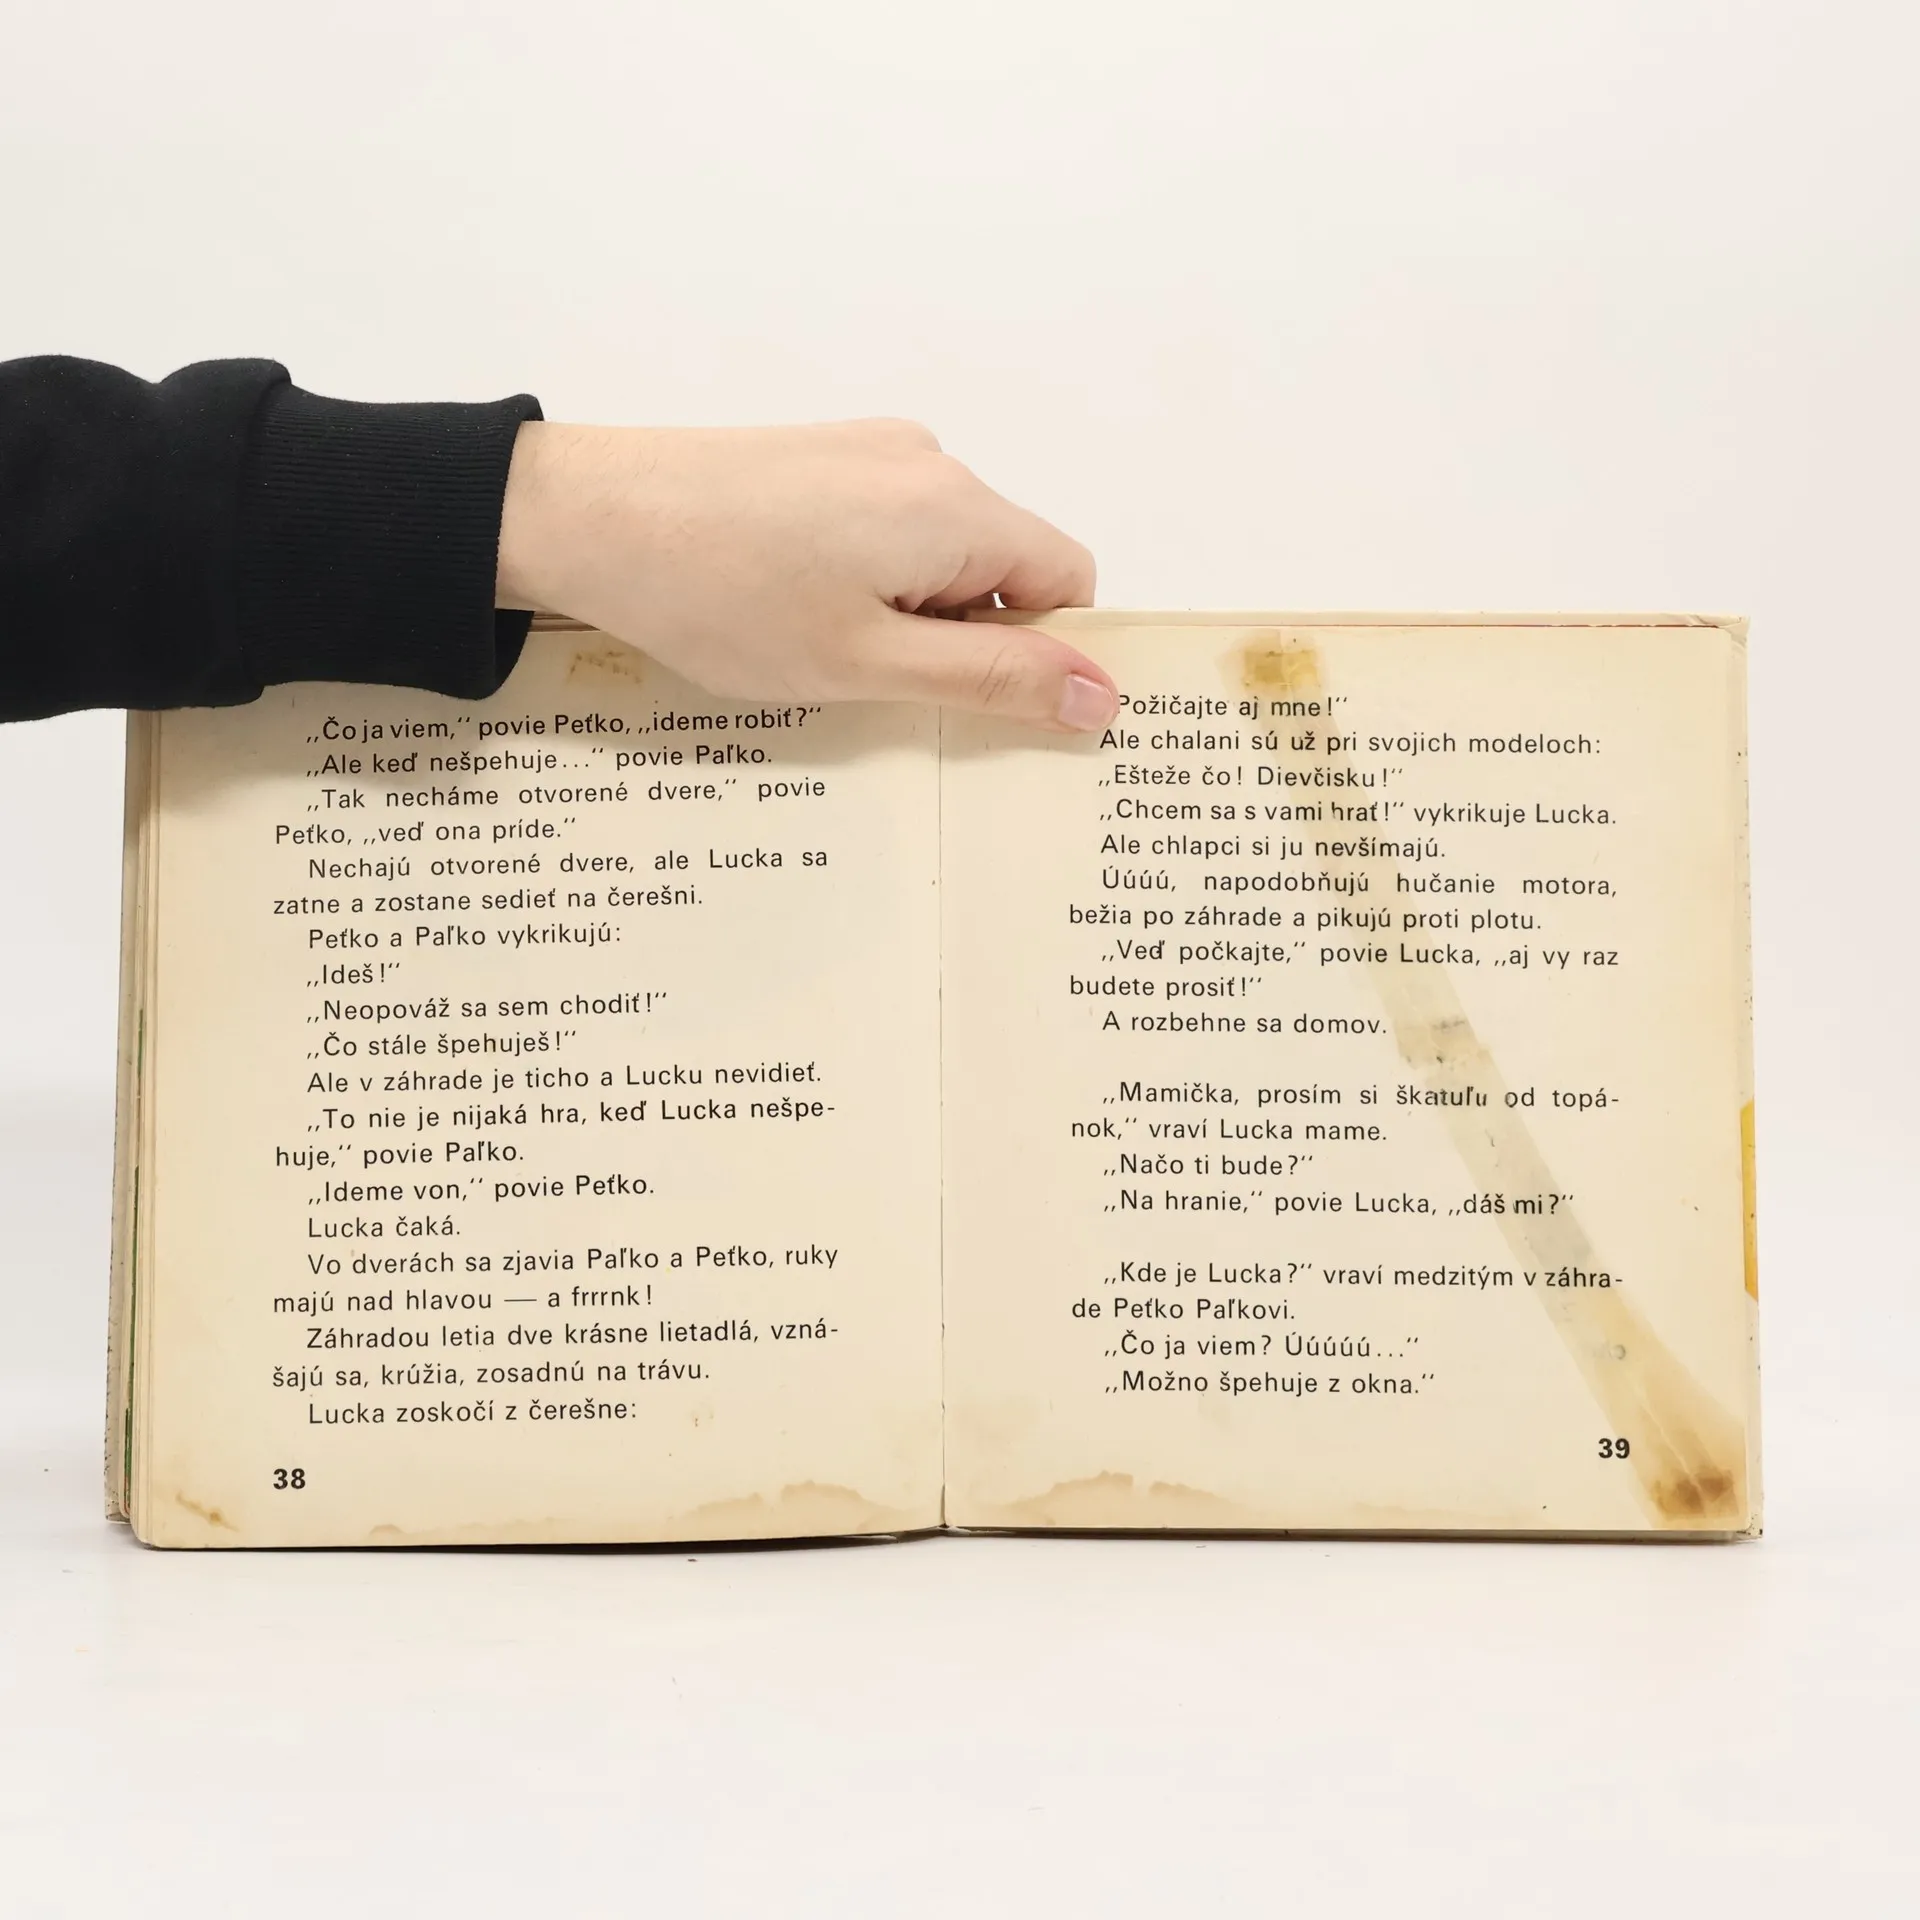 „Čo ja viem,“ povie Peťko, „ideme robiť?“
„Ale keď nešpehuje...“ povie Paľko.
„Tak necháme otvorené dvere,“ povie
Peťko, „veď ona príde.“
Nechajú otvorené dvere, ale Lucka sa
zatne a zostane sedieť na čerešni.
Peťko a Paľko vykrikujú:
„Ideš!“
„Neopováž sa sem chodiť!“
„Čo stále špehuješ!“
Ale v záhrade je ticho a Lucku nevidieť.
„To nie je nijaká hra, keď Lucka nešpe-
huje,“ povie Paľko.
„Ideme von,“ povie Peťko.
Lucka čaká.
Vo dverách sa zjavia Paľko a Peťko, ruky
majú nad hlavou — a frrrnk!
Záhradou letia dve krásne lietadlá, vzná-
šajú sa, krúžia, zosadnú na trávu.
Lucka zoskočí z čerešne:
38
Požičajte aj mne!“
Ale chalani sú už pri svojich modeloch:
„Ešteže čo! Dievčisku!“
„Chcem sa s vami hrať!“ vykrikuje Lucka.
Ale chlapci si ju nevšímajú.
Úúúú, napodobňujú hučanie motora,
bežia po záhrade a pikujú proti plotu.
„Veď počkajte,“ povie Lucka, „aj vy raz
budete prosiť!“
A rozbehne sa domov.
„Mamička, prosím si škatuľu od topá-
nok,“ vraví Lucka mame.
„Načo ti bude?“
„Na hranie,“ povie Lucka, „dáš mi?“
„Kde je Lucka?“ vraví medzitým v záhra-
de Peťko Paľkovi.
„Čo ja viem? Úúúúú...“
„Možno špehuje z okna.“
39